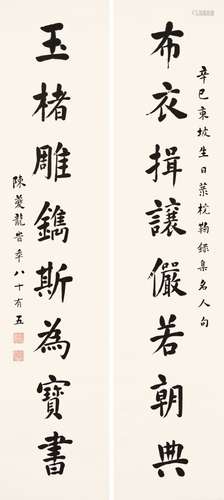 辛巳東坡生日集名人句
布衣揖讓儼若朝典
玉楮雕鐫斯為寶書
陳夔龍旹年八十有五